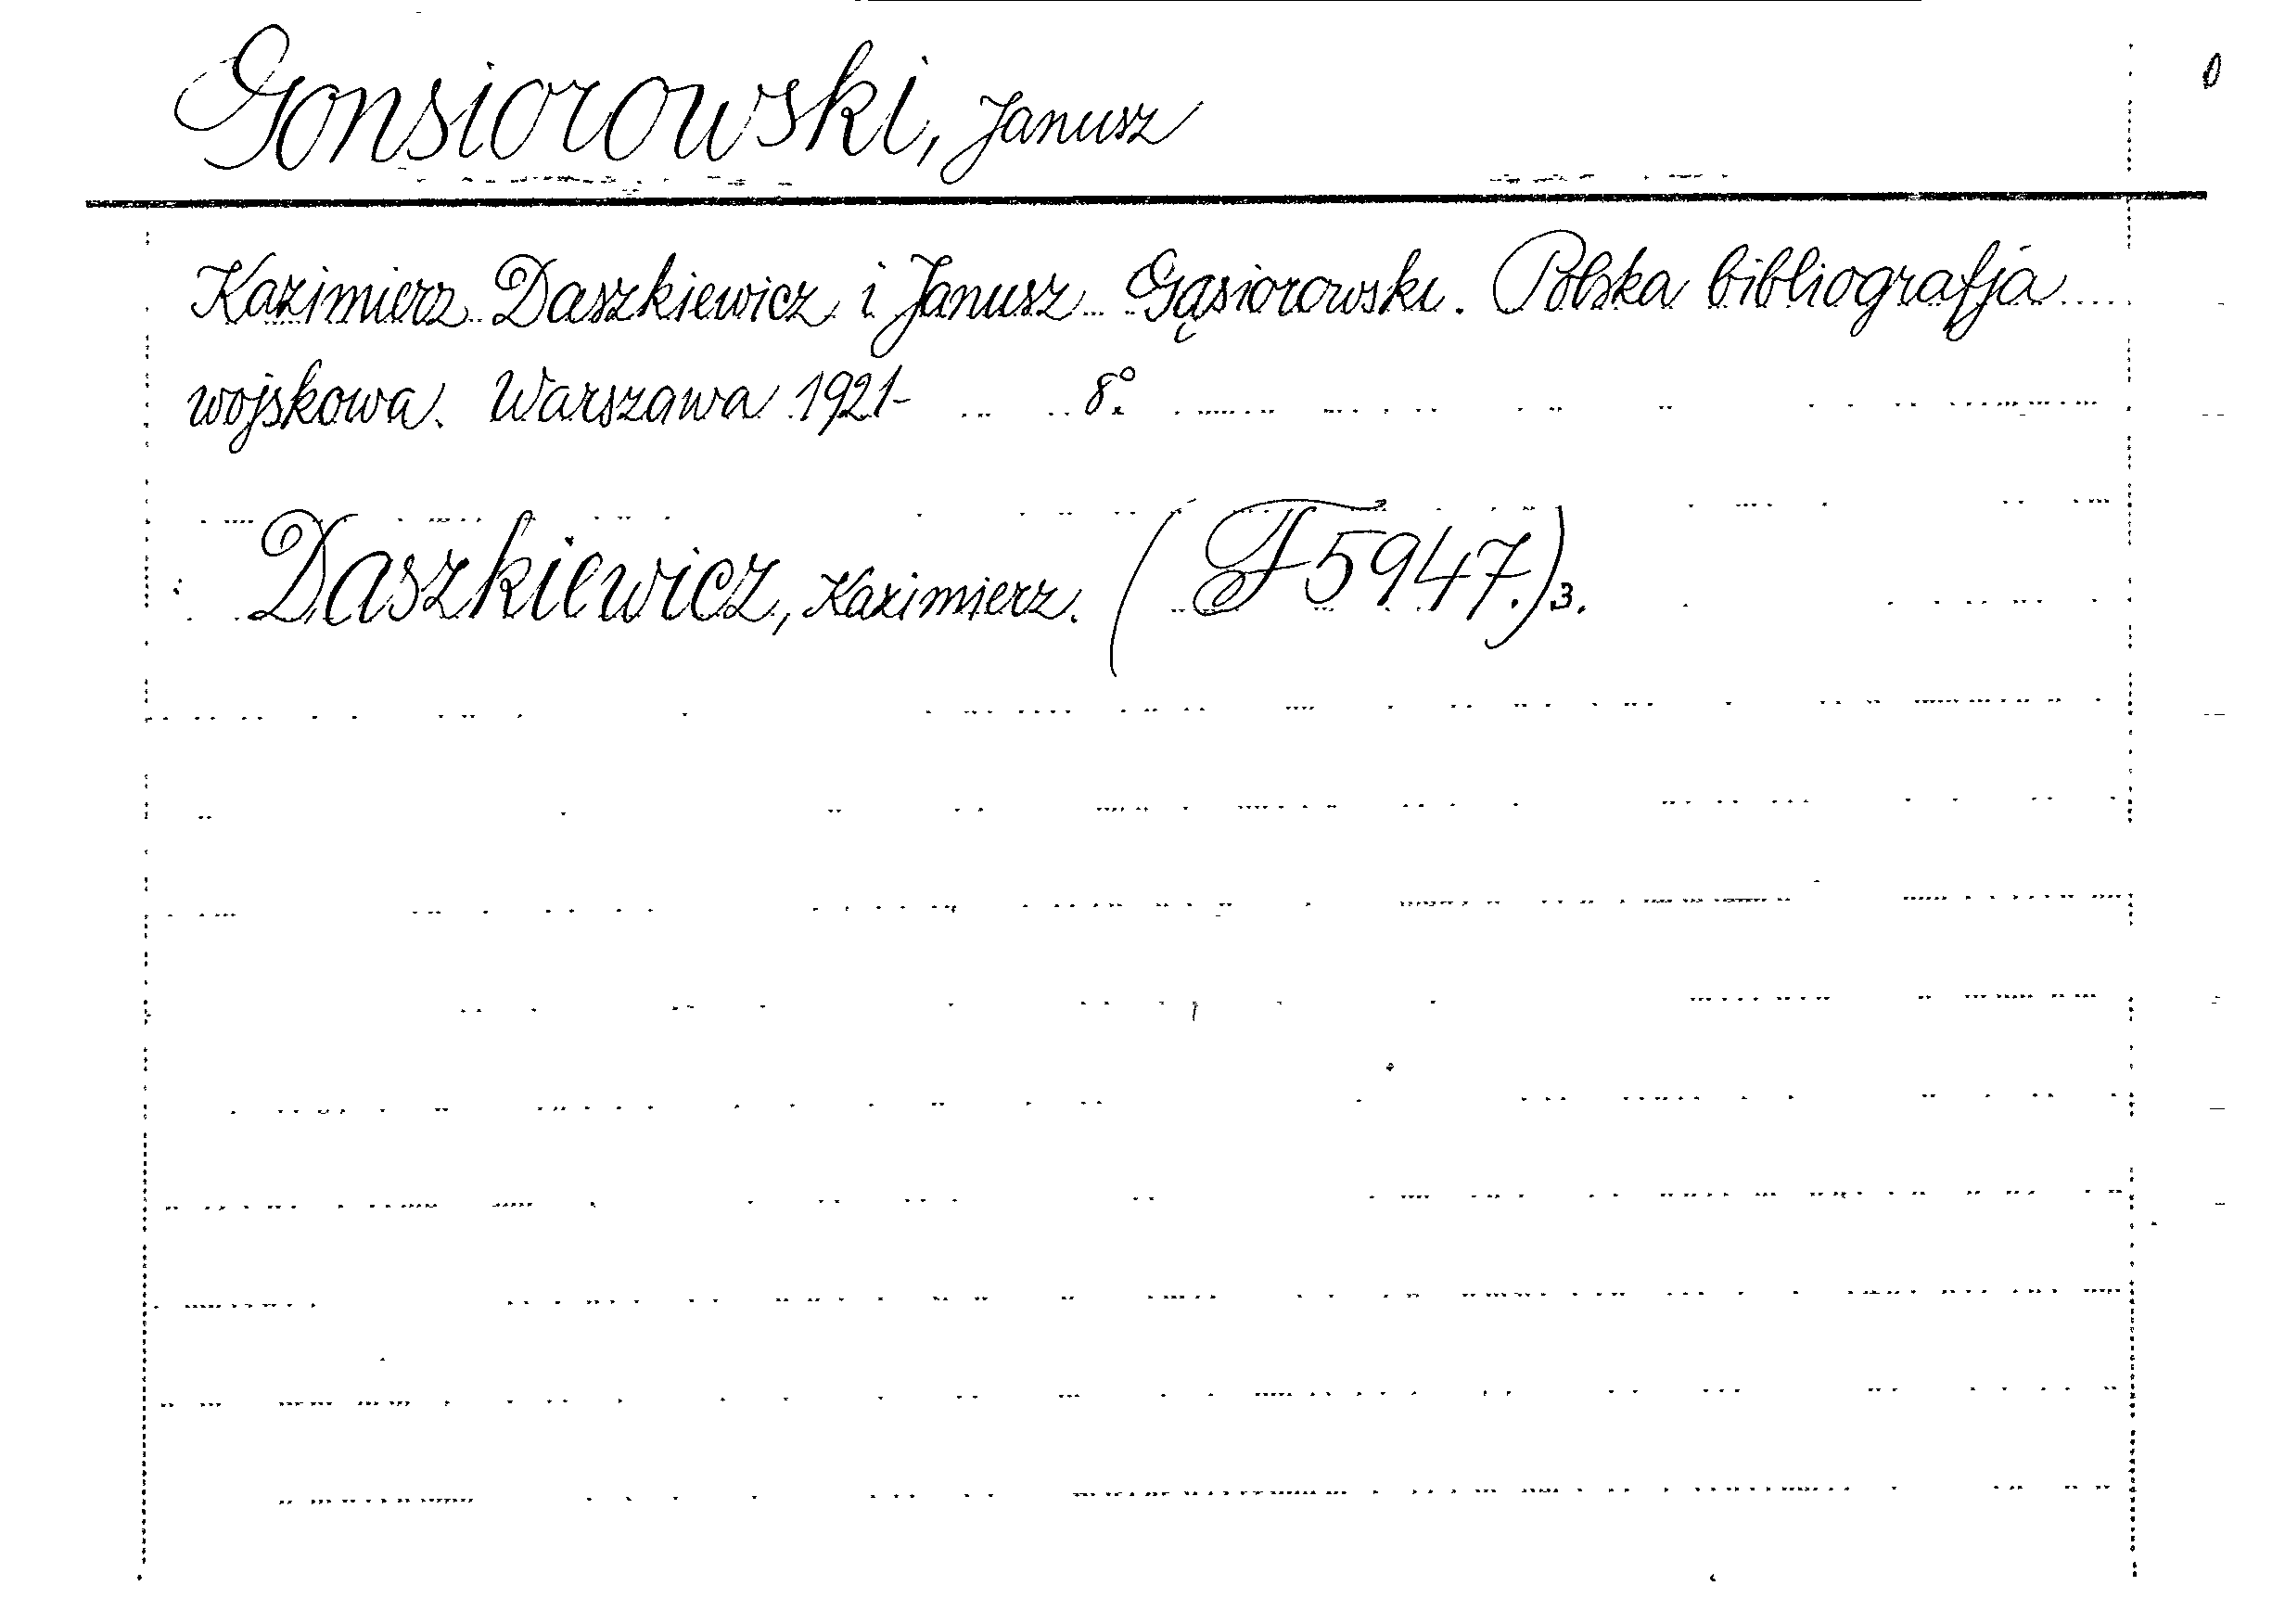 Gonsiorowski, Janusz
Kazimierz Daszkiewicz i Janusz Gąsiorowski. Polska bibliografja
wojskowa. Warszawa 1921- 8°.
Daszkiewicz, Kazimierz. (F 5947.)3.